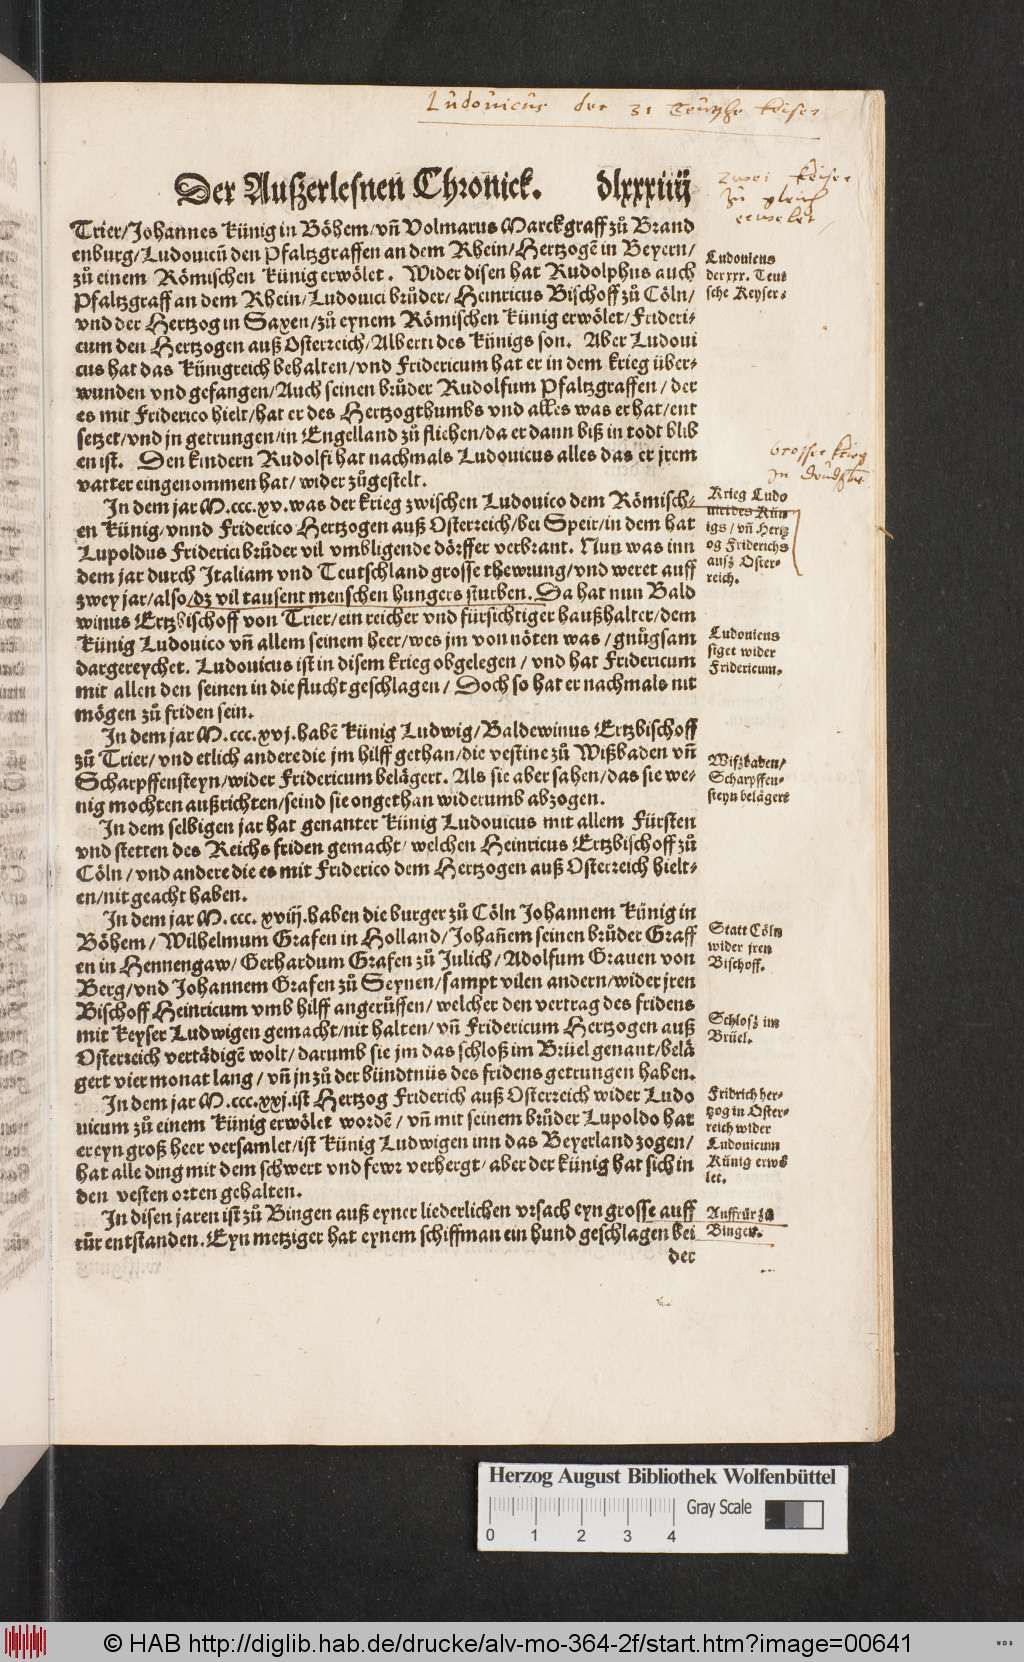 Ludouicus der 31 Teutzhe keiser
Der Außerlesnen Chronick. dlxxxiiij
zwei keiser
zu gleich
erwelet
Trier/Johannes Künig in Böhem/vñ Volmarus Marckgraff zů Brand
enburg/Ludouicũ den Pfaltzgraffen an dem Rhein/Hertzogẽ in Beyern/
zů einem Römischen Künig erwölet. Wider disen hat Rudolphus auch
Pfaltzgraff an dem Rhein/Ludouici brůder/Heinricus Bischoff zů Cöln/
vnd der Hertzog in Saxen/zů eynem Römischen Künig erwölet/Frideri-
cum den Hertzogen auß Osterreich/Alberti des Künigs son. Aber Ludoui
cus hat das Künigreich behalten/vnd Fridericum hat er in dem krieg über-
wunden vnd gefangen/Auch seinen brůder Rudolfum Pfaltzgraffen/der
es mit Friderico hielt/hat er des Hertzogthumbs vnd alles was er hat/ent
setzet/vnd jn getrungen/in Engelland zů fliehen/da er dann biß in todt blib
en ist. Den kindern Rudolfi hat nachmals Ludouicus alles das er jrem
vatter eingenommen hat/wider zůgestelt.
Ludouicus
der xxx. Teut
sche Keyser.
In dem jar M.ccc.xv.was der krieg zwischen Ludouico dem Römisch-
en Künig/vnnd Friderico Hertzogen auß Osterreich/bei Speir/in dem hat
Lupoldus Friderici brůder vil vmbligende dörffer verbrant. Nun was inn
dem jar durch Italiam vnd Teutschland grosse thewrung/vnd weret auff
zwey jar/also/dz vil tausent menschen hungers sturben. Da hat nun Bald
winus Ertzbischoff von Trier/ein reicher vnd fürsichtiger haußhalter/dem
Künig Ludouico vñ allem seinem heer/wes jm von nöten was/gnůgsam
dargereychet. Ludouicus ist in disem krieg obgelegen/vnd hat Fridericum
mit allen den seinen in die flucht geschlagen/Doch so hat er nachmals nit
mögen zů friden sein.
grosser krieg
in
Krieg Ludo
uici des Kün
igs/vñ Hertz
og Friderichs
ausz Oster-
reich.
Ludouicus
siget wider
Fridericum.
In dem jar M.ccc.xvj.habẽ Künig Ludwig/Baldewinus Ertzbischoff
zů Trier/vnd etlich andere die jm hilff gethan/die vestine zů Wißbaden vñ
Scharpffensteyn/wider Fridericum belägert. Als sie aber sahen/das sie we-
nig mochten außrichten/seind sie ongethan widerumb abzogen.
Wiszbaden/
Scharpffen-
steyn belägert
In dem selbigen jar hat genanter Künig Ludouicus mit allem Fürsten
vnd stetten des Reichs friden gemacht/welchen Heinricus Ertzbischoff zů
Cöln/vnd andere die es mit Friderico dem Hertzogen auß Osterreich hielt-
en/nit geacht haben.
In dem jar M.ccc.xviij.haben die burger zů Cöln Johannem Künig in
Böhem/Wilhelmum Grafen in Holland/Johañem seinen brůder Graff
en in Hennengaw/Gerhardum Grafen zů Julich/Adolfum Grauen von
Berg/vnd Johannem Grafen zů Seynen/sampt vilen andern/wider jren
Bischoff Heinricum vmb hilff angerůffen/welcher den vertrag des fridens
mit Keyser Ludwigen gemacht/nit halten/vñ Fridericum Hertzogen auß
Osterreich vertädigẽ wolt/darumb sie jm das schloß im Brüel genant/belä
gert vier monat lang/vñ jn zů der bündtnüs des fridens getrungen haben.
Statt Cöln
wider jren
Bischoff.
Schlosz im
Brüel.
In dem jar M.ccc.xxj.ist Hertzog Friderich auß Osterreich wider Ludo
uicum zů einem Künig erwölet wordẽ/vñ mit seinem brůder Lupoldo hat
er eyn groß heer versamlet/ist Künig Ludwigen inn das Beyerland zogen/
hat alle ding mit dem schwert vnd fewr verhergt/aber der Künig hat sich in
den vesten orten gehalten.
Fridrich her-
tzog in Oster-
reich wider
Ludouicum
Künig erwö
let.
In disen jaren ist zů Bingen auß eyner liederlichen vrsach eyn grosse auff
růr entstanden. Eyn metziger hat eynem schiffman ein hund geschlagen bei
der
Auffrůr zů
Bingen.
Herzog August Bibliothek Wolfenbüttel
0 1 2 3 4
Gray Scale
© HAB http://diglib.hab.de/drucke/alv-mo-364-2f/start.htm?image=00641